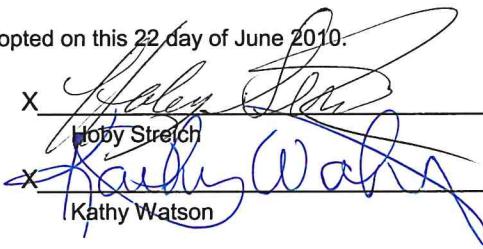 opted on this 22 day of June 2010.
X
Hoby Streich
X Kathy Watson
Kathy Watson